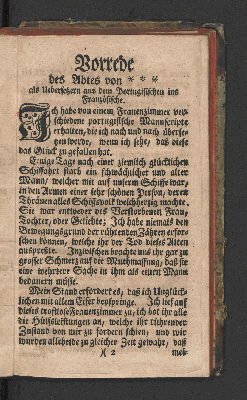 Vorrede
des Abtes von * * *
als Uebersetzern aus dem Portugisischen ins
Französische.
Ich habe von einem Frauenzimmer ver-
schiedene portugisische Manuscripte
erhalten, die ich nach und nach überse-
tzen werde, wenn ich sehe, daß diese
das Glück zu gefallen hat.
Einige Tage nach einer ziemlich glücklichen
Schiffahrt starb ein schwächlicher und alter
Mann, welcher mit auf unserm Schiffe war,
in den Armen einer sehr schönen Person, deren
Thränen alles Schiffsvolk weichherzig machte.
Sie war entweder des Verstorbenen Frau,
Tochter, oder Geliebte: Ich habe niemals den
Bewegungsgrund der rührenden Zähren erfor-
schen können, welche ihr der Tod dieses Alten
auspreßte. Inzwischen brachte uns ihr gar zu
großer Schmerz auf die Muthmaßung, daß sie
eine mehrere Sache in ihm als einen Mann
bedauern müsse.
Mein Stand erfordert es, daß ich Unglück-
lichen mit allem Eifer beyspringe. Ich lief auf
dieses trostlose Frauenzimmer zu, ich bot ihr alle
die Hülfsleistungen an, welche ihr rührender
Zustand von mir zu fordern schien; und wir
wurden allebeyde zu gleicher Zeit gewahr, daß
)( 2 mein-